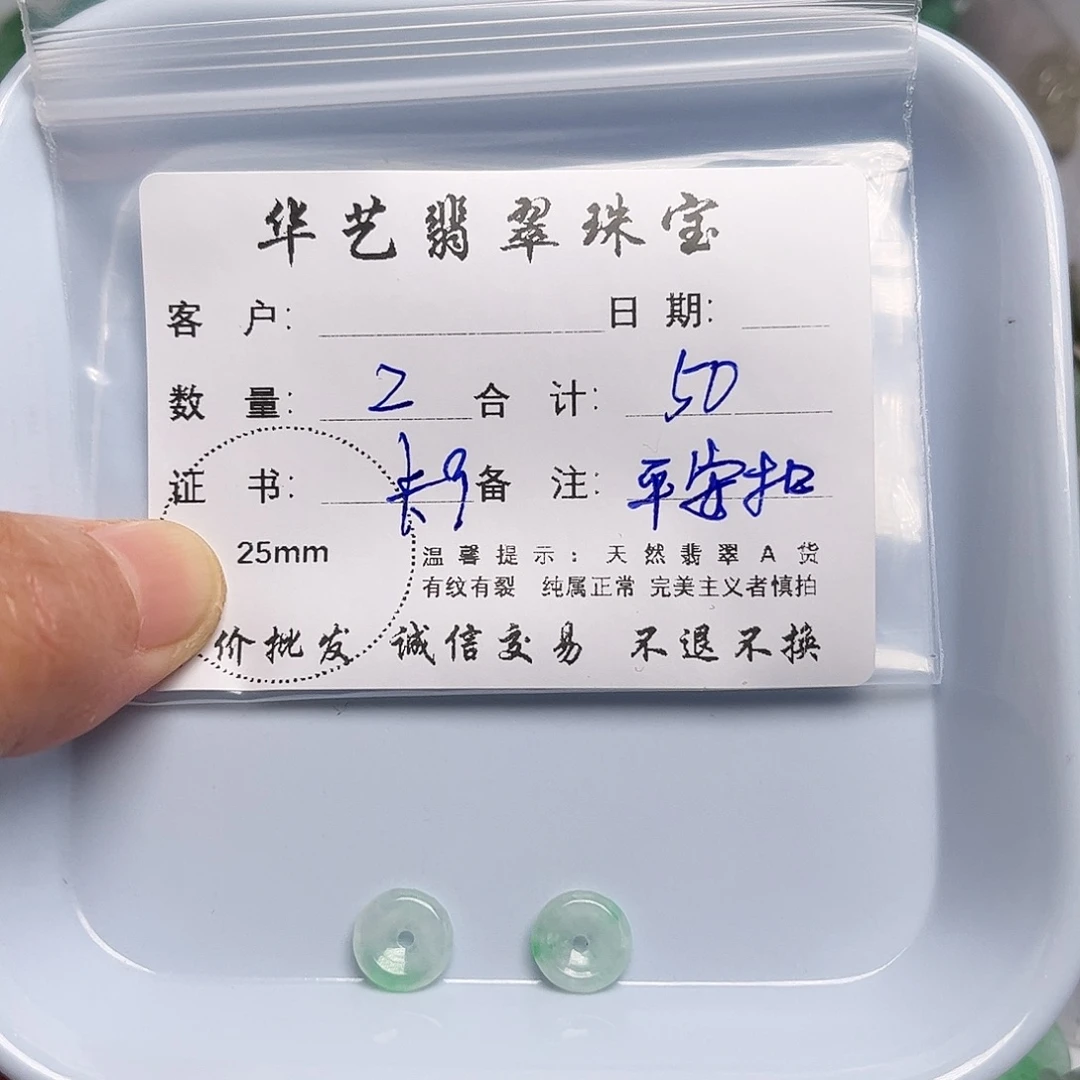 华艺翡翠珠宝
客 户: 日 期:
数 量: 2 合 计: 50
证 书: 备 注: 平安扣
25mm 温馨提示: 天然翡翠A货
有纹有裂 纯属正常 完美主义者慎拍
价批发 诚信交易 不退不换